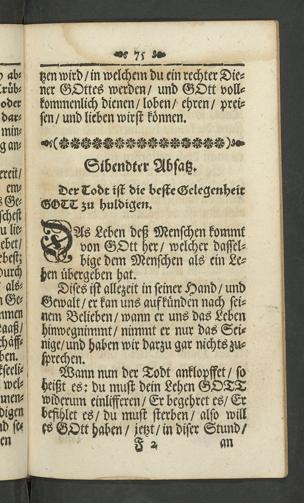 75
tzen wird/ in welchem du ein rechter Die-
ner GOttes werden/ und GOtt voll-
kommenlich dienen/ loben/ ehren/ prei-
sen/ und lieben wirst können.
Sibendter Absatz.
Der Todt ist die beste Gelegenheit
GOTT zu huldigen.
DAs Leben deß Menschen kommt
von GOtt her/ welcher dassel-
bige dem Menschen als ein Le-
hen übergeben hat.
Dises ist allezeit in seiner Hand/ und
Gewalt/ er kan uns aufkünden nach sei-
nem Belieben/ wann er uns das Leben
hinwegnimmt/ nimmt er nur das Sei-
nige/ und haben wir darzu gar nichts zu-
sprechen.
Wann nun der Todt anklopffet/ so
heißt es: du must dein Lehen GOTT
widerum einlifferen/ Er begehret es/ Er
befihlet es/ du must sterben/ also will
es GOtt haben/ jetzt/ in diser Stund/
F 2 an